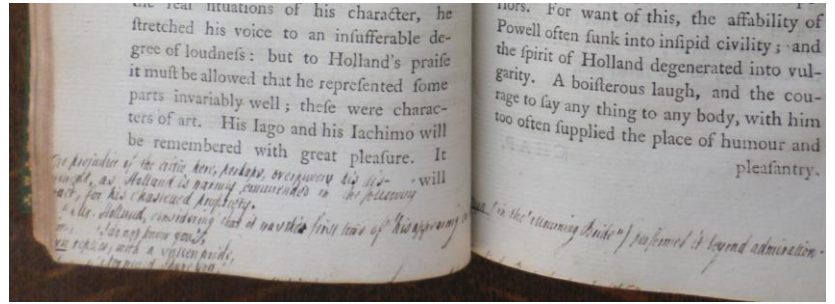 the real situations of his character, he
ſtretched his voice to an inſufferable de-
gree of loudneſs: but to Holland's praiſe
it muſt be allowed that he repreſented ſome
parts invariably well; theſe were charac-
ters of art. His Iago and his Iachimo will
be remembered with great pleaſure. It
will
The prejudice of the critic here, perhaps, overpowers his
as Holland is namely commended in the following
for his chastened propriety.
Mr. Holland, considering that it was the first time of his appearing in
I do not know you
replies, with a
For want of this, the affability of
Powell often ſunk into inſipid civility; and
the ſpirit of Holland degenerated into vul-
garity. A boiſterous laugh, and the cou-
rage to ſay any thing to any body, with him
too often ſupplied the place of humour and
pleaſantry.
CHAP.
in the Bride") performed it beyond admiration.